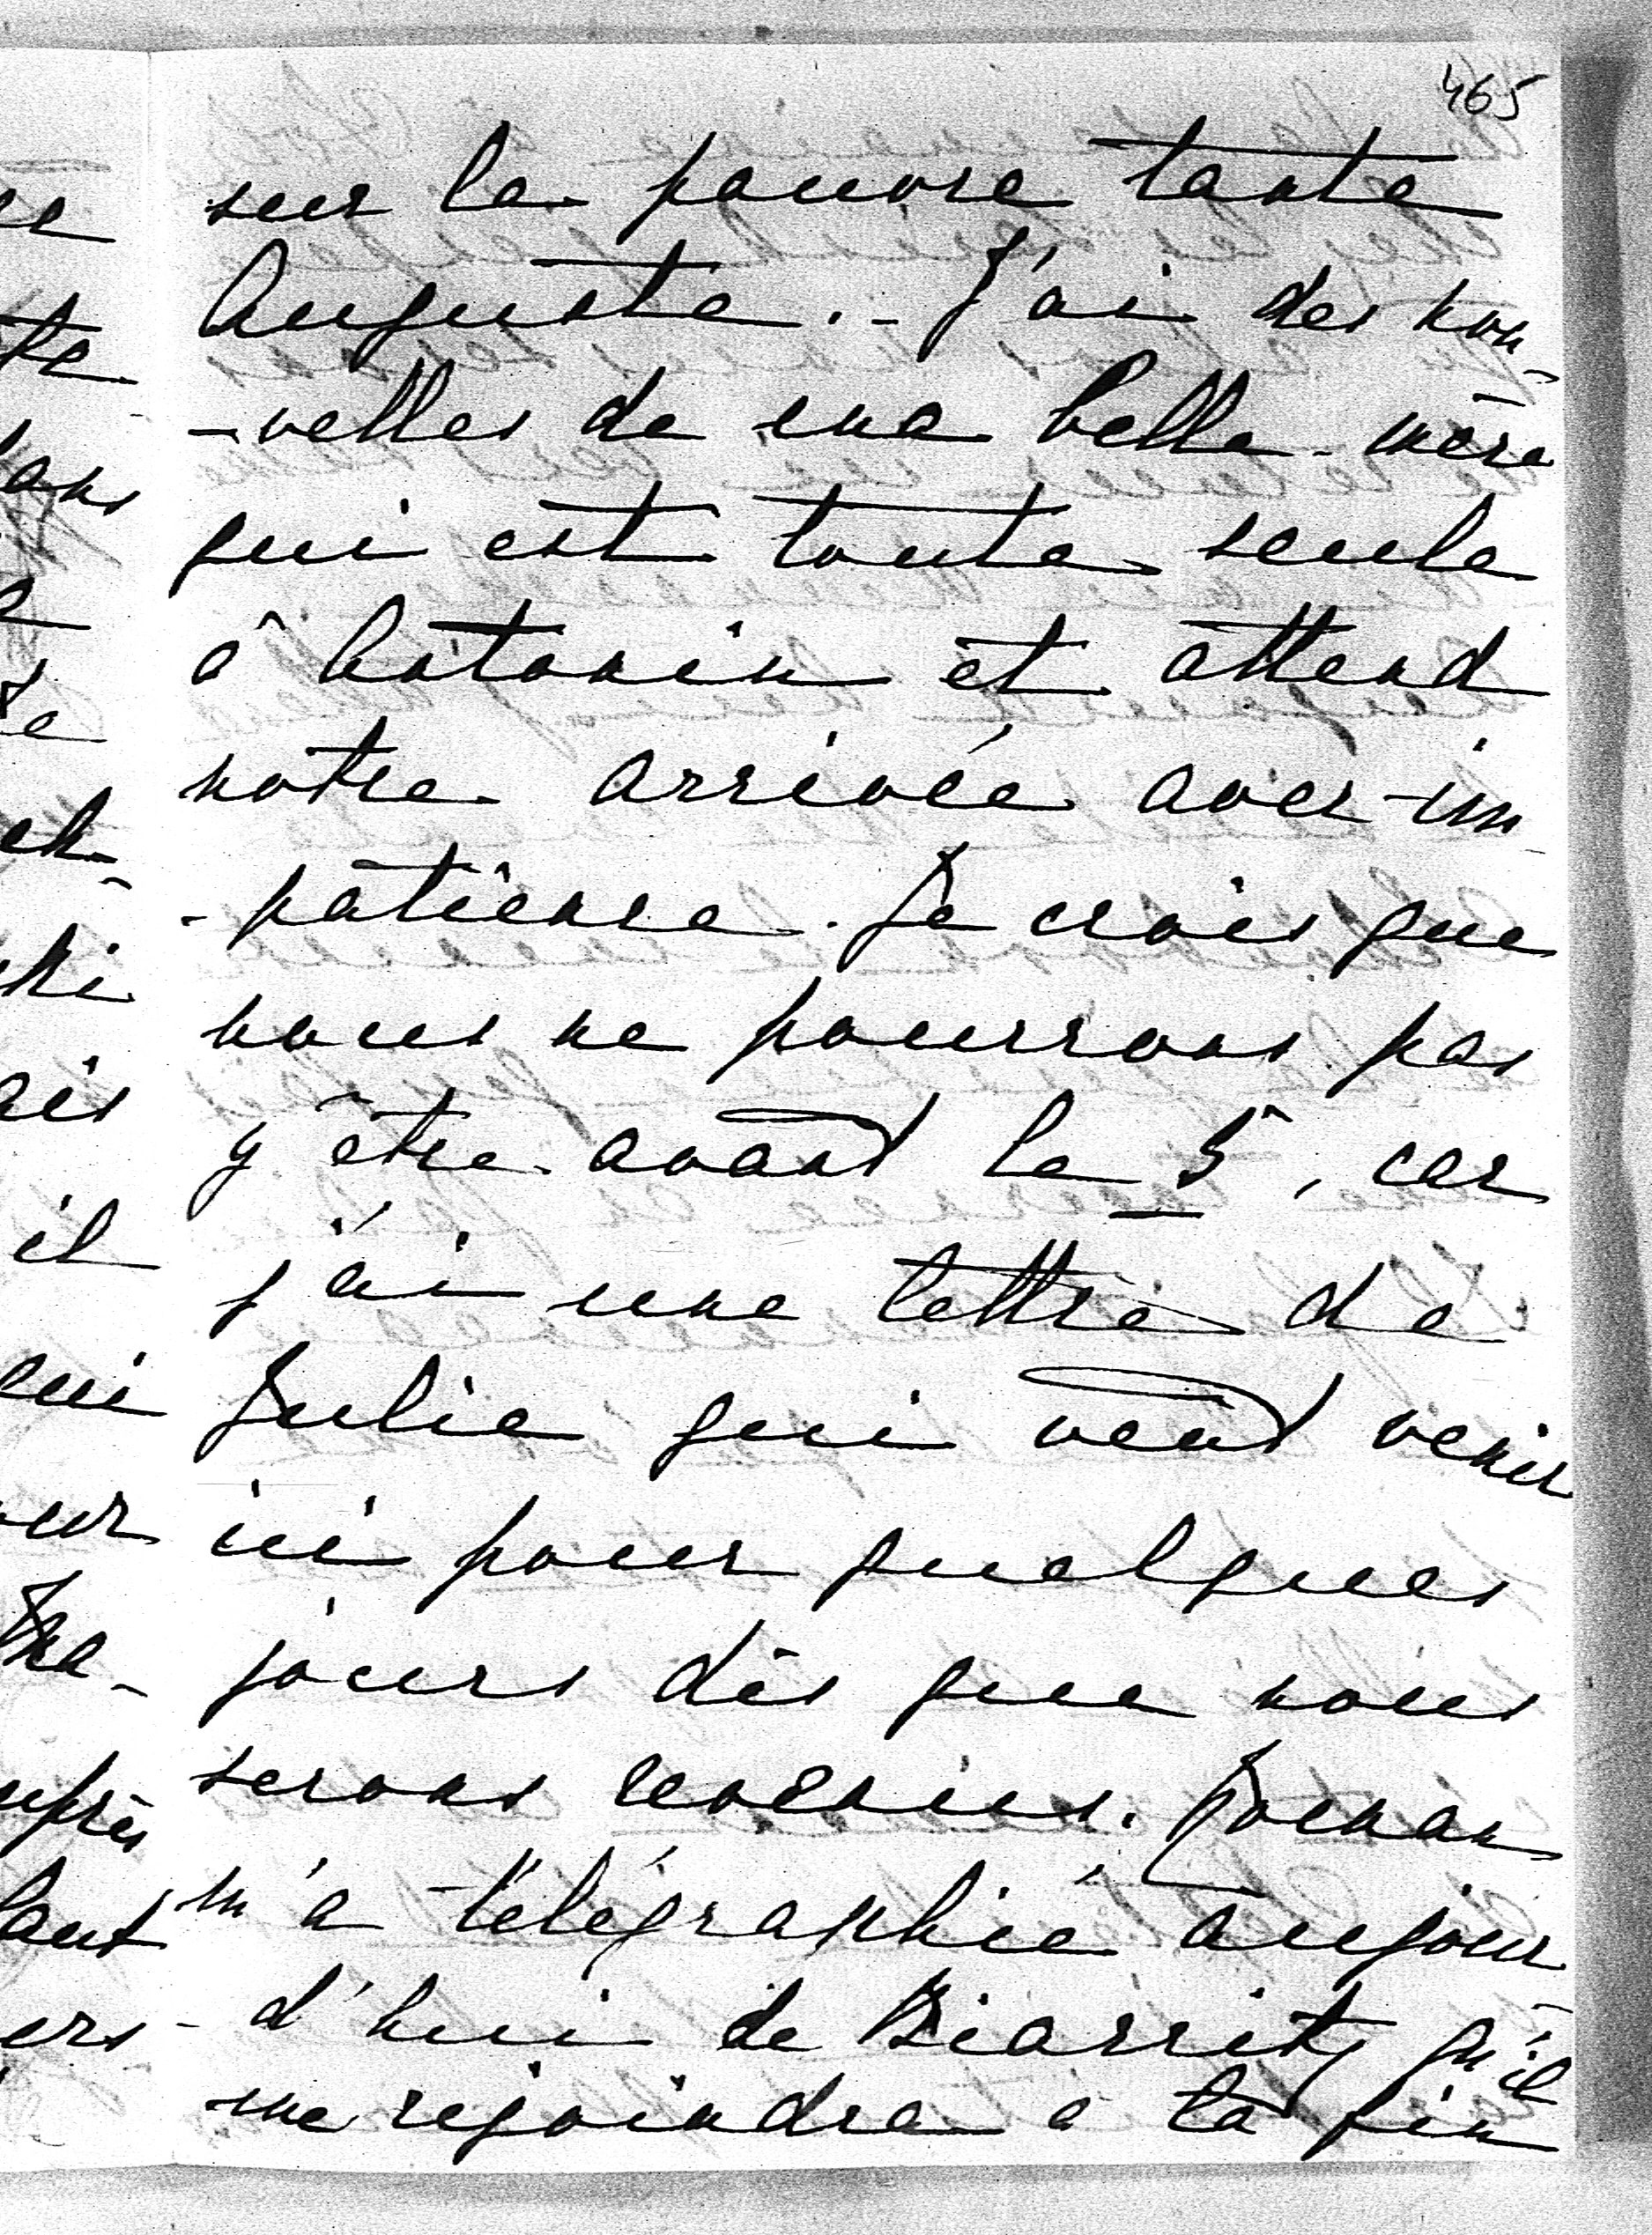 465
sur la pauvre tante
Auguste. - J'ai des nou-
-velles de ma belle-mère
qui est toute seule
à Antonin et attend
notre arrivée avec im-
-patience. Je crois que
nous ne pourrons pas
y être avant le 5, car
j'ai une lettre de
Julie qui veut venir
ici pour quelques
jours dès que nous
serons revenus.
m'a télégraphié aujour-
-d'hui de Biarritz qu'il
me rejoindra à la fin